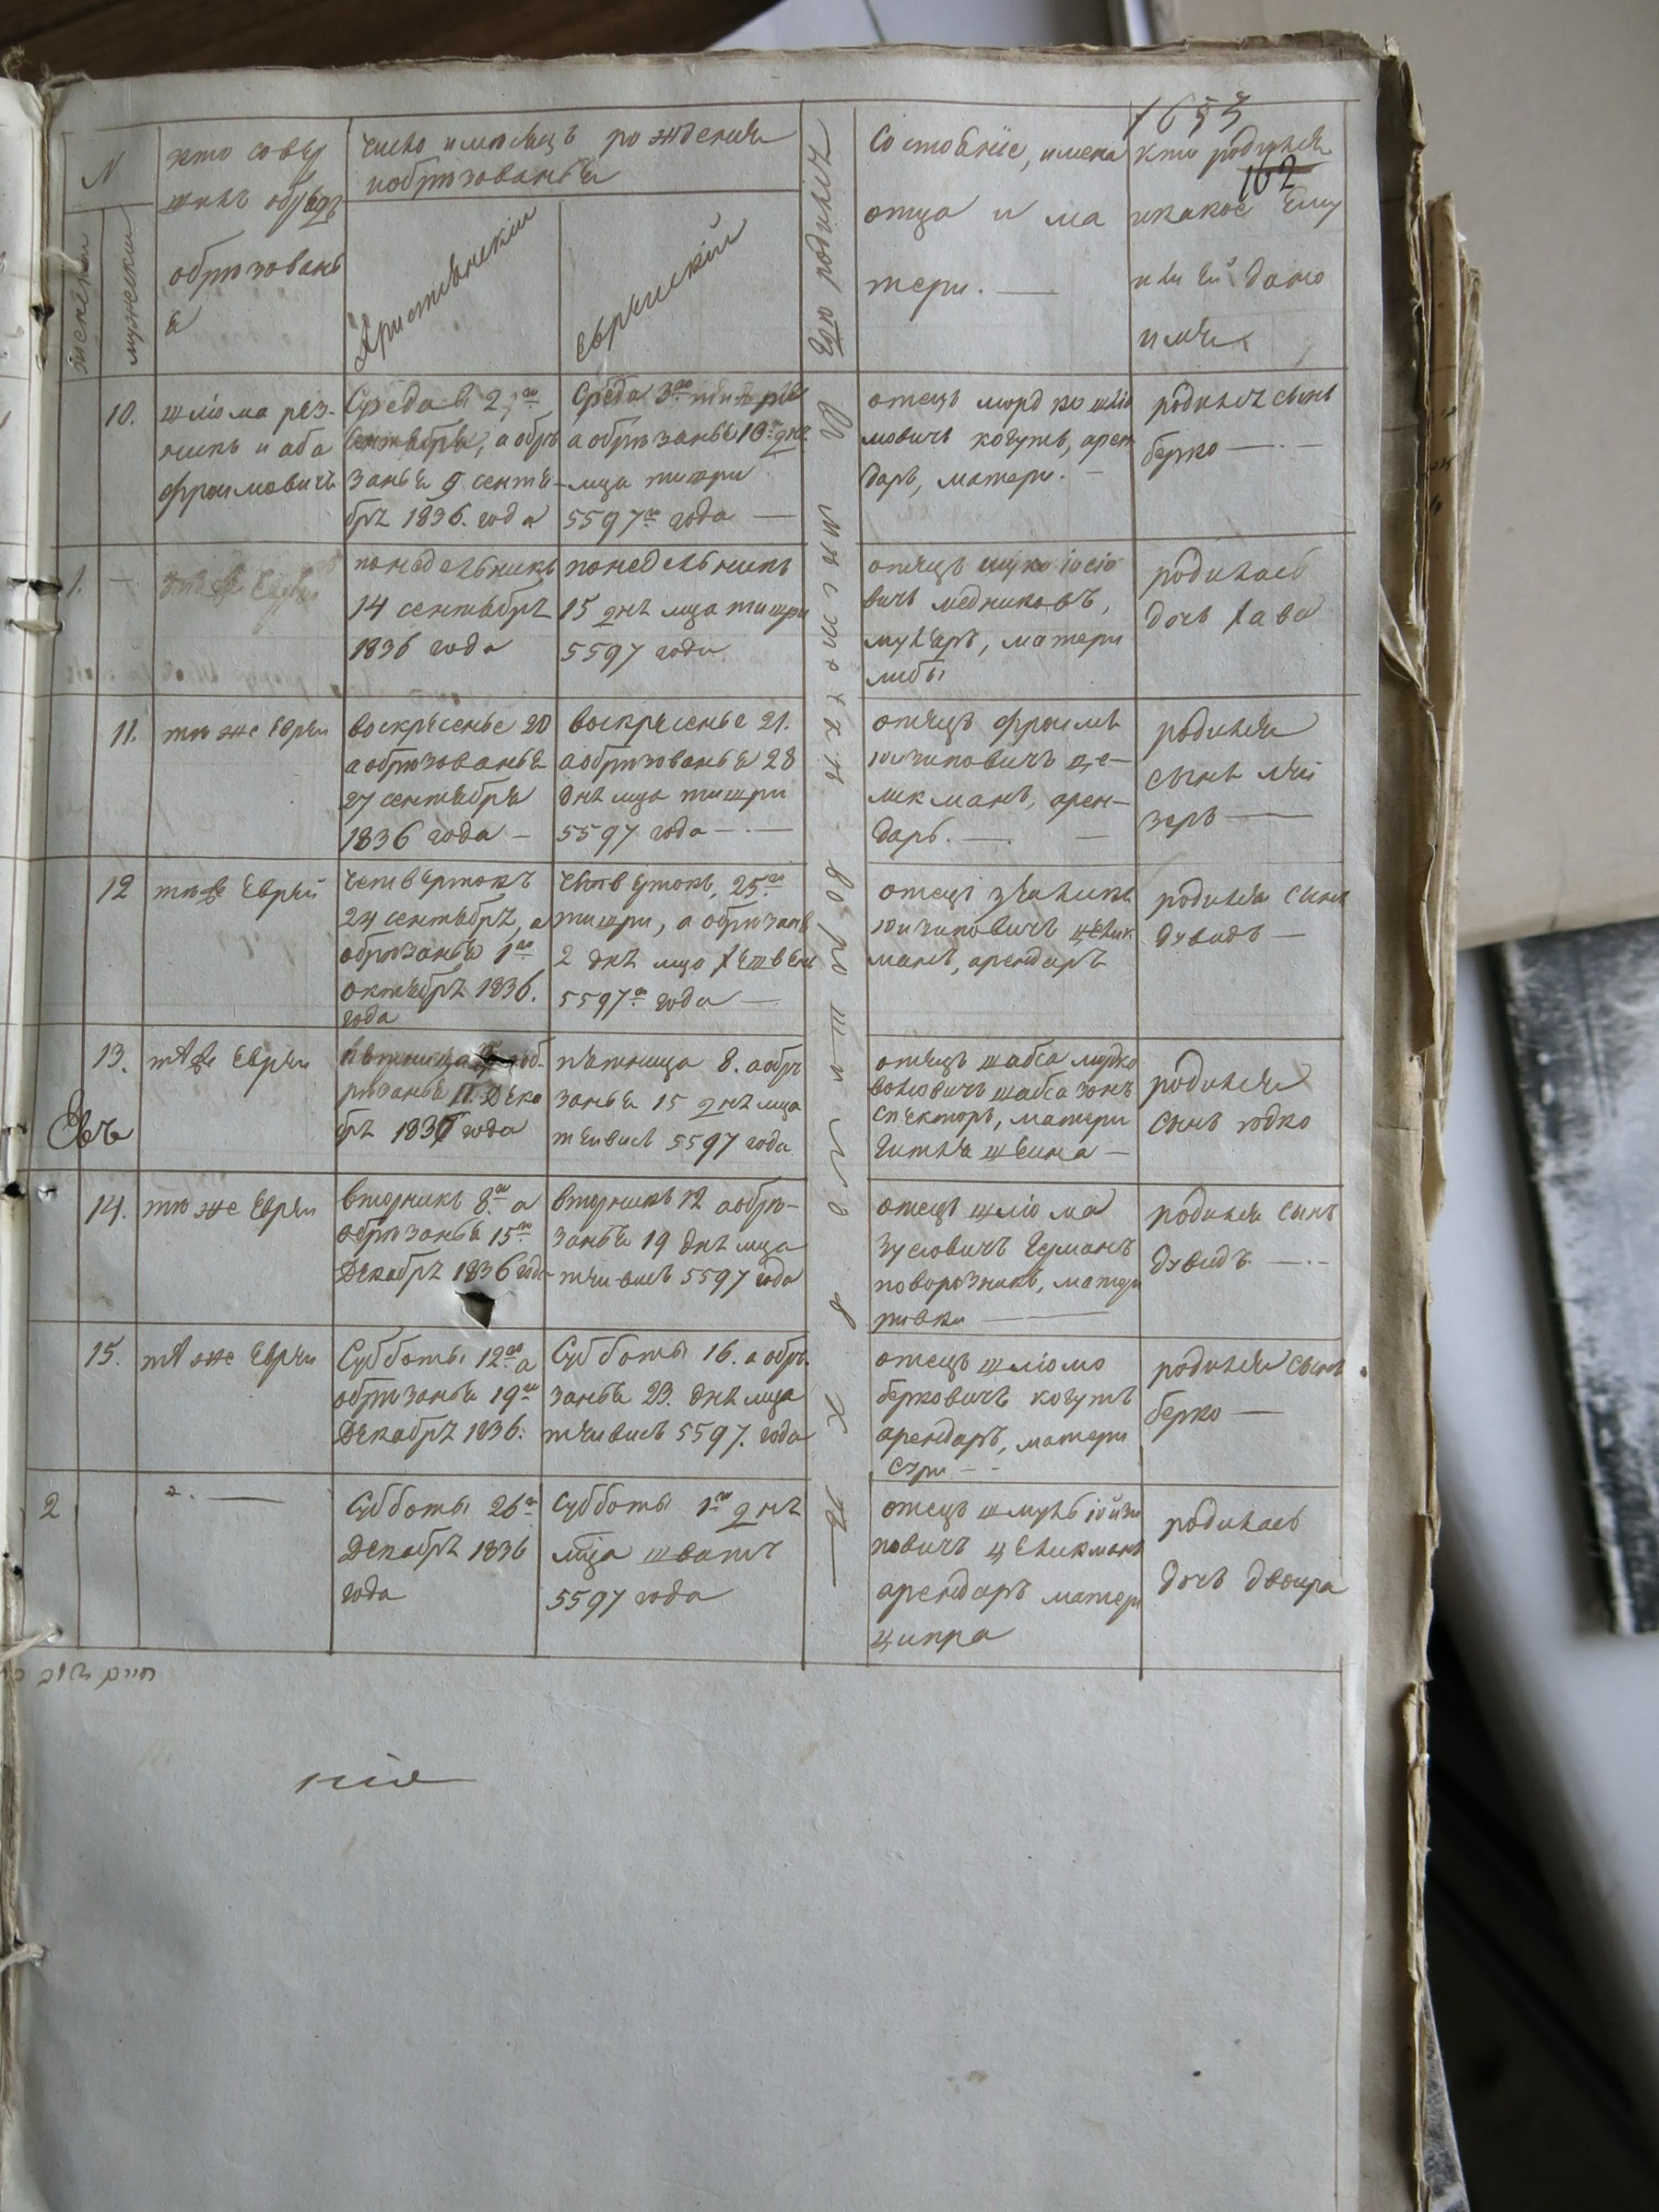 16
162
N
женски
мужески
хто совер
шилъ обрядъ
обрезовань
я
число и месяцъ рождения
и обрезованья
Християнский
Еврейский
где родился
Состояніе, имена
отца и ма
тери. —
кто родился
и какое ему
или ей дано
имя
10.
шліома рез-
никъ и аба
фроимовичъ
Среда
Сентября, а обре
занья 9 сентя-
бря 1836. года
Среда 3го тишри
а обрезанье 10го дня
мца тишри
5597го года —
отецъ мордко шліо
мовичъ когутъ, арен
даръ, матери. —
родился сынъ
берко —
1. —
понедельникъ
14 сентября
1836 года
понедельникъ
15 дня мца тишри
5597 года
отецъ іосіо
вичъ медниковъ,
муляръ, матери
либы
родилась
дочь хава
11.
тѣ же Евреи
воскресенье 20
а обрезованья
27 сентября
1836 года —
воскресенье 21.
а обрезованья 28
дня мца тишри
5597 года —
отецъ фроимъ
цe-
ликманъ, арен-
даръ. —
родился
сынъ лей
зеръ —
12
тѣ же Еврей
четвертокъ
24 сентября, а
обрезанья 1го
октября 1836.
года
четвертокъ, 25го
тишри, а обрезань
2 дня мца хешвень
5597го года —
отецъ
целик
манъ, арендаръ
родился сынъ
дувидъ —
13.
Евъ
тѣ же Евреи
пятница а об-
резанья 11. Дека
бря 1836 года
пятница 8. а обре
занья 15 дня мца
тейвисъ 5597 года
отецъ шабса мордко
вичъ шабсазонъ
спекторъ, матери
гитля шейна —
родился
сынъ юдко
14.
тѣ же Евреи
вторникъ 8го а
обрезанья 15го
Декабря 1836 года
вторникъ 12 а обре-
занья 19 дня мца
тейвисъ 5597 года
отецъ шліома
зусювичъ германъ
поворозникъ, матери
ривки —
родился сынъ
дувидъ. —
15.
тѣ же Евреи
Субботы 12го а
обрезанья 19го
Декабря 1836.
Субботы 16. а обре
занья 23. дня мца
тейвисъ 5597. года
отецъ шліомо
берковичъ когутъ
арендаръ, матери
Сури —
родился сынъ
берко —
2
Субботы 26го
Декабря 1836
года
Субботы 1го дня
мца шватъ
5597 года
отецъ шмуль
целикманъ
арендаръ матери
ципра
родилась
дочь двоира